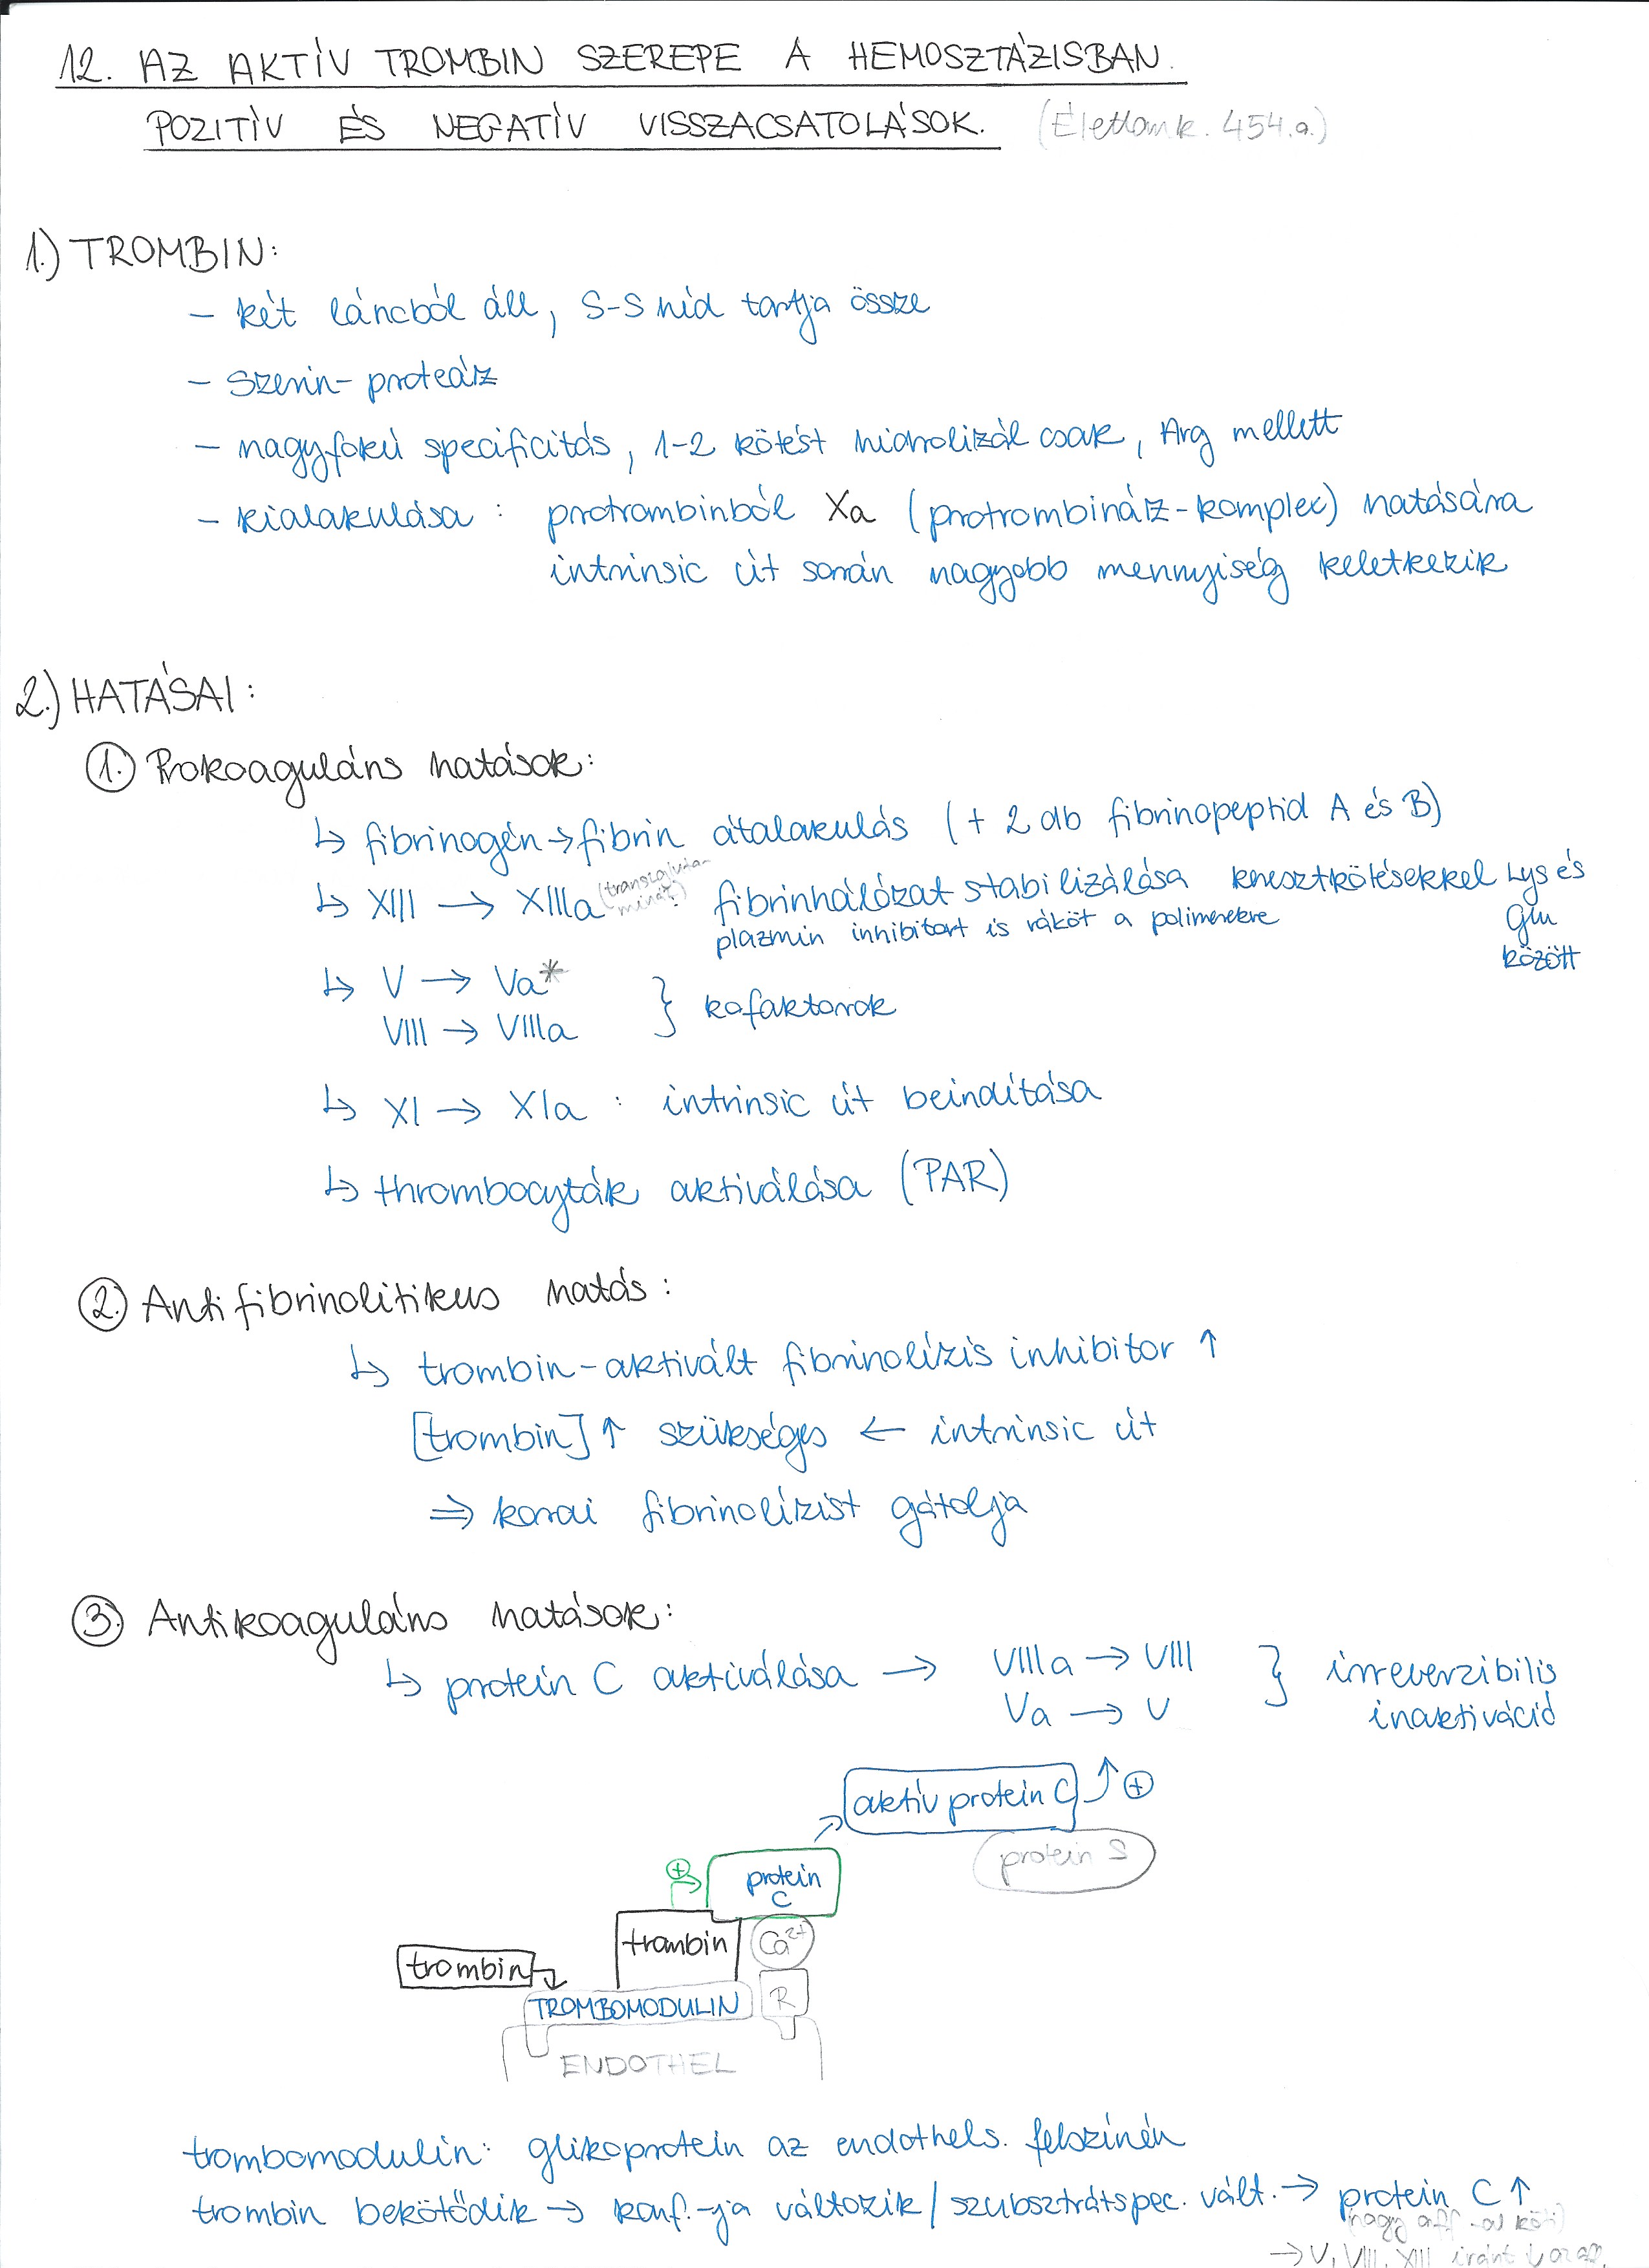 12. AZ AKTÍV TROMBIN SZEREPE A HEMOSZTÁZISBAN.
POZITÍV ÉS NEGATÍV VISSZACSATOLÁSOK. (Élettank. 454.o.)
1.) TROMBIN:
- két láncból áll, S-S híd tartja össze
- szerin-proteáz
- nagyfokú specificitás, 1-2 kötést hidrolizál csak, Arg mellett
- kialakulása : protrombinból Xa (protrombináz-komplex) hatására
intrinsic út során nagyobb mennyiség keletkezik
2.) HATÁSAI:
1. Prokoaguláns hatások:
↳ fibrinogén → fibrin átalakulás (+ 2 db fibrinopeptid A és B)
↳ XIII → XIIIa fibrinhálózat stabilizálása keresztkötésekkel Lys és
Glu
között
plazmin inhibitort is ráköt a polimerekre
↳ V → Va*
VIII → VIIIa } kofaktorok
↳ XI → XIa : intrinsic út beindítása
↳ thrombocyták aktiválása (PAR)
2. Antifibrinolitikus hatás:
↳ trombin-aktivált fibrinolízis inhibitor ↑
[trombin] ↑ szükséges ← intrinsic út
⇒ korai fibrinolízist gátolja
3. Antikoaguláns hatások:
↳ protein C aktiválása → VIIIa → VIII } irreverzibilis
Va → V inaktiváció
aktív protein C ⊕
protein S
⊕ protein
C
trombin Ca²⁺
trombin
TROMBOMODULIN R
ENDOTHEL
trombomodulin: glikoprotein az endothels. felszínén
trombin bekötődik → konf.-ja változik / szubsztrátspec. vált. → protein C ↑
(nagy aff-al köti)
→ V, VIII, XIII iránt